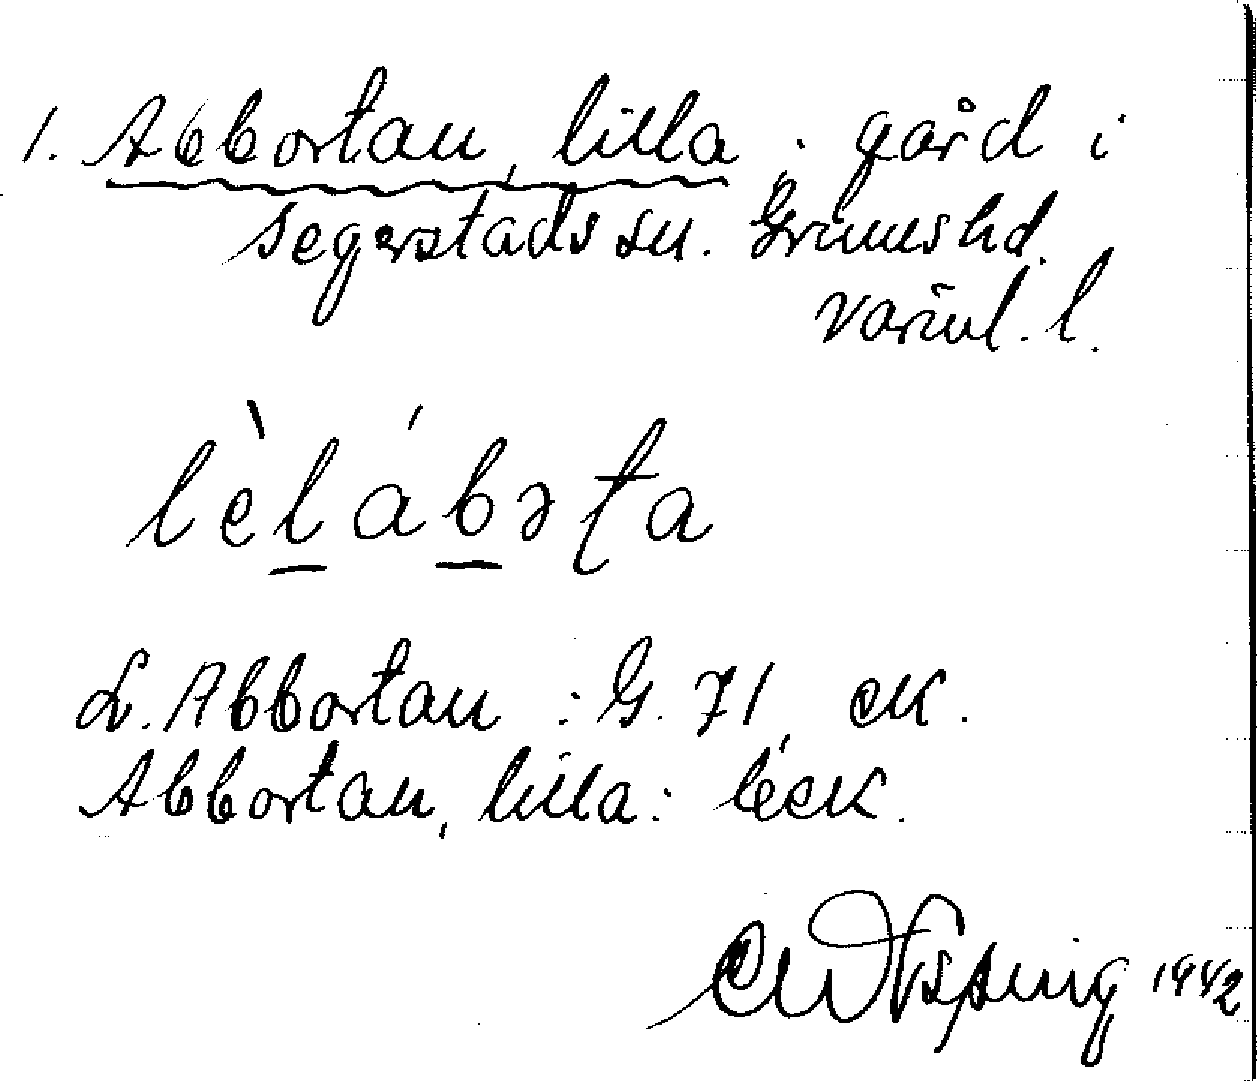 1. Abbortan, lilla : gård i
Segerstads sn. Grums hd.
Värml. l.
lèlábəta
L. Abbortan : G. 71, ek.
Abbortan, lilla :
1942